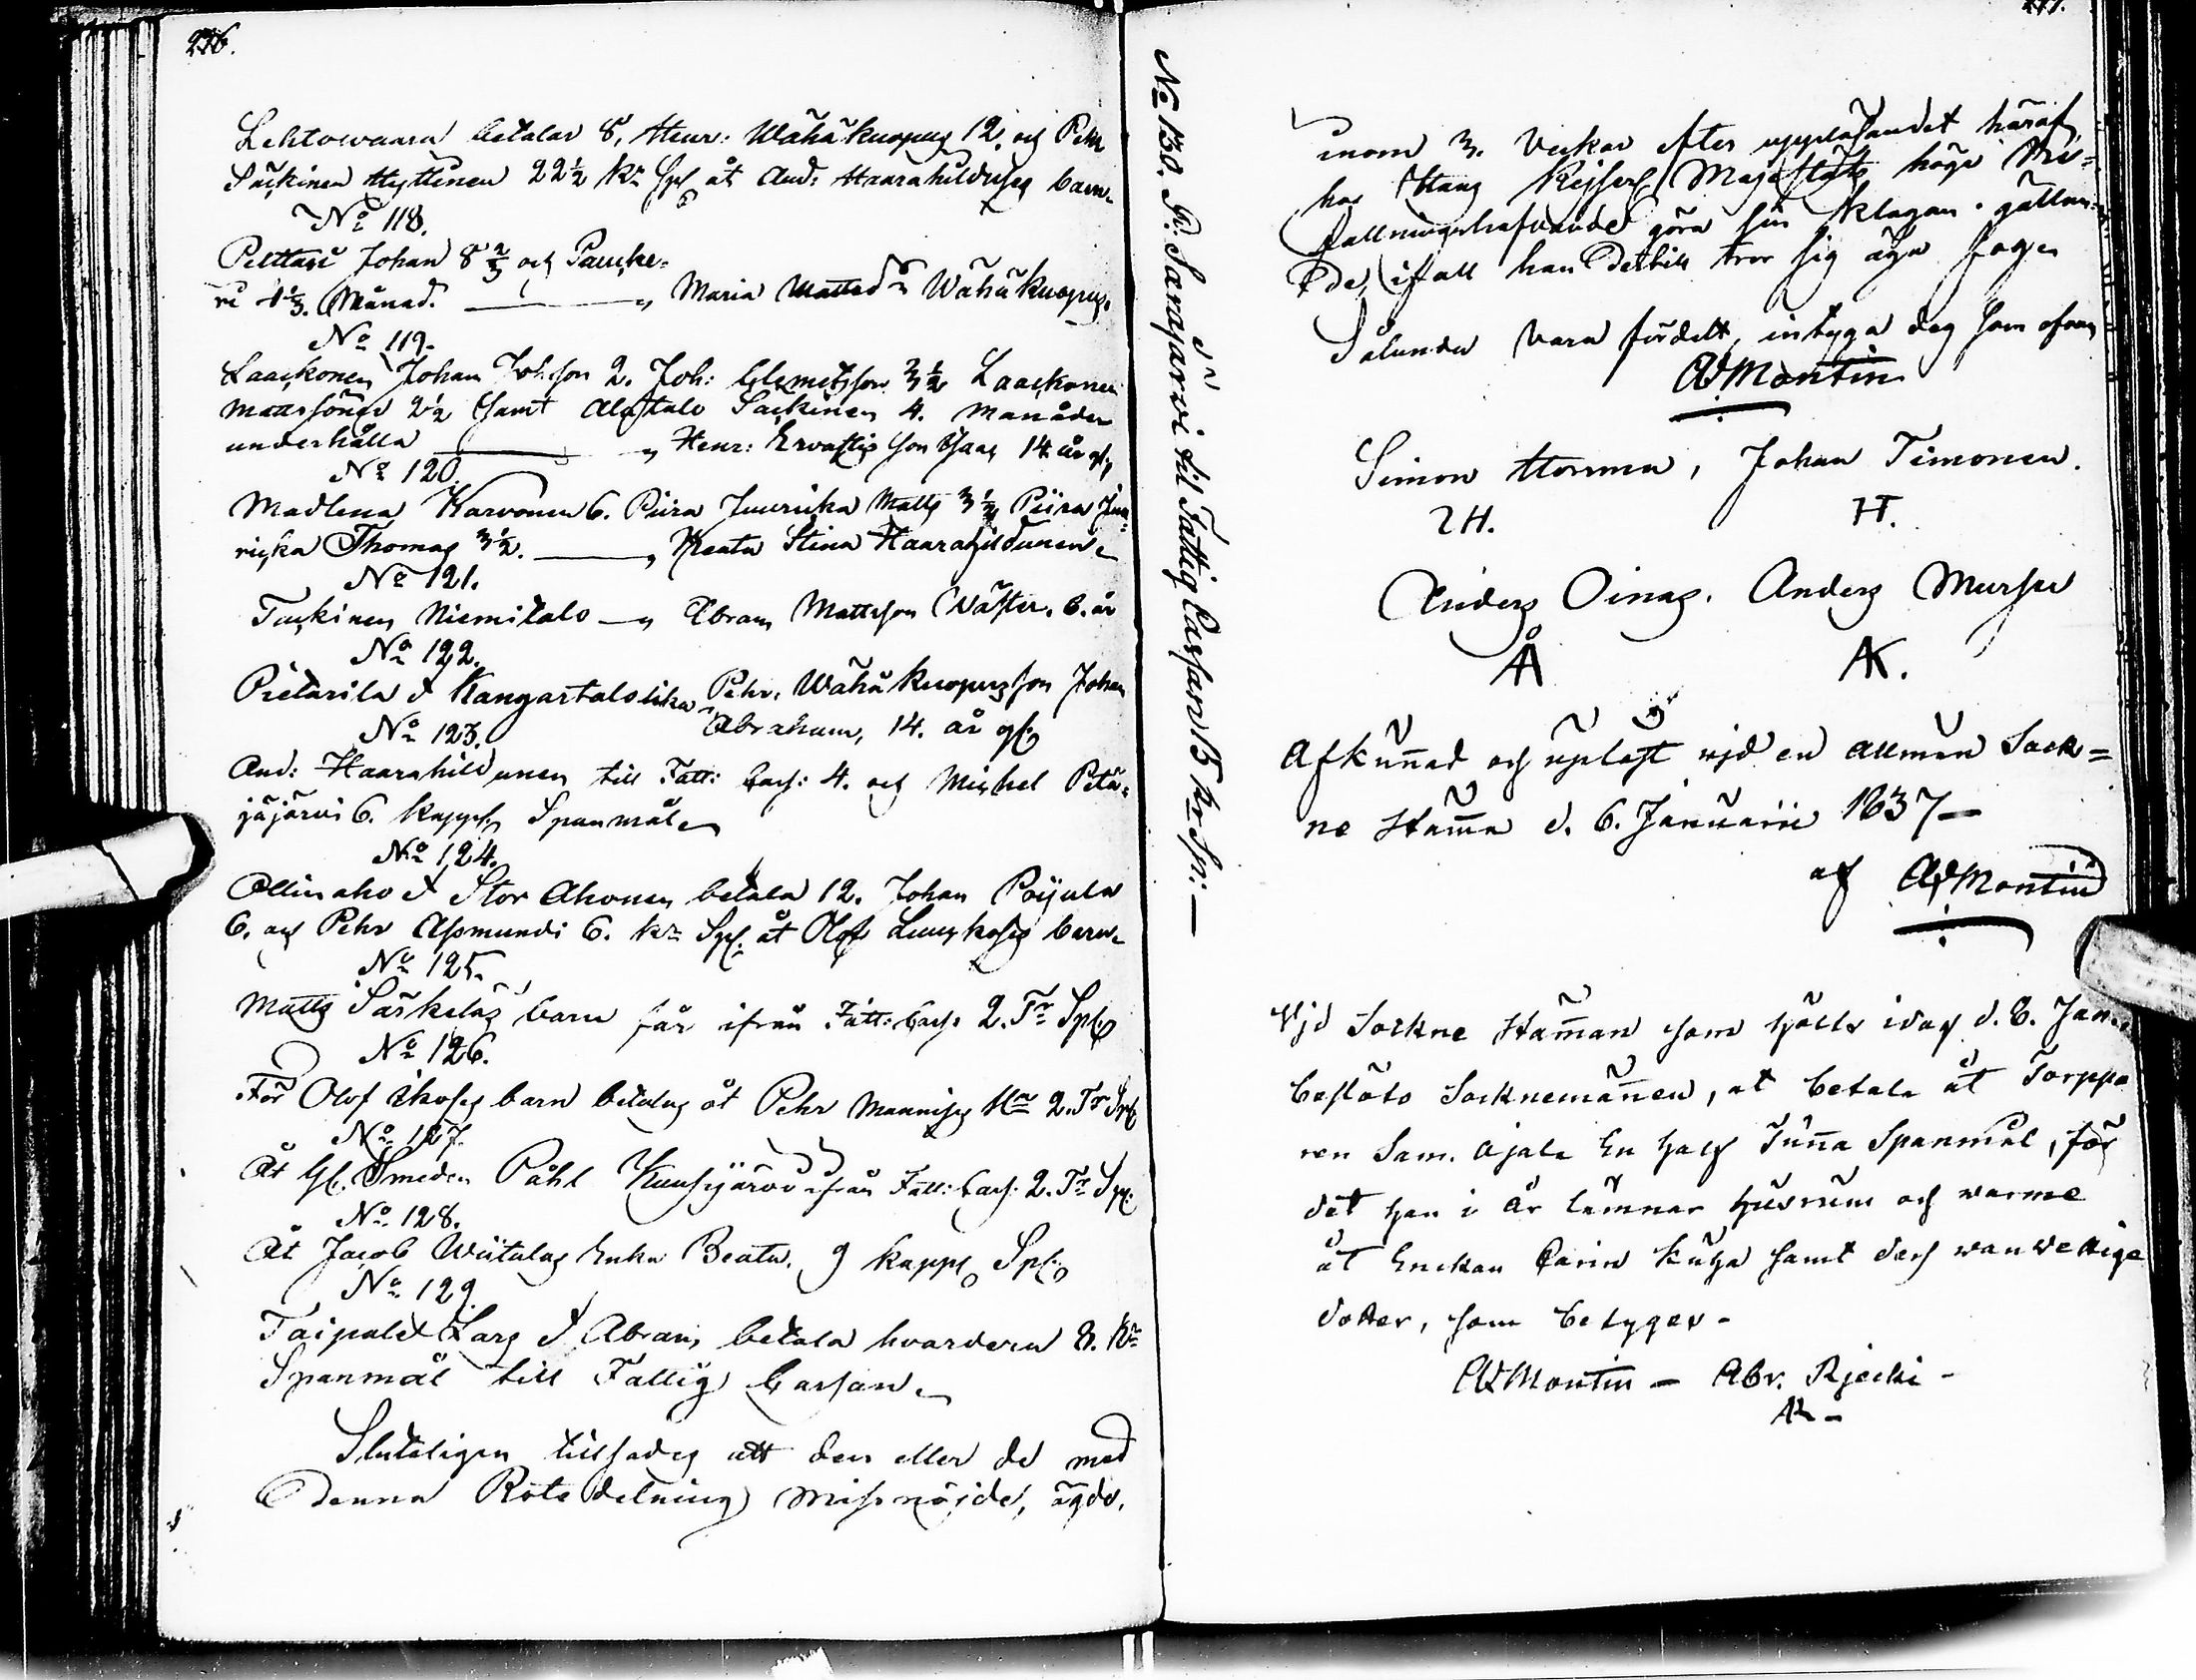 276.
Lehtowaara betalar 8, Henr: Wähäkuopus 12. och Pehr
Säckinen Hyttinen 22½ Kr Spl åt And: Haarahildusens barn.
No 118.
Pelttari Johan 8⅔ och
ri 1⅓. Månad. — Maria Mattsdr Wähäkuopus.
No 119.
Laackonen Johan Johsson 2. Joh: Clemetsson 3½ Laackonen
Mattssöner 2½ samt Alatalo Säckinen 4. Månader
underhålla — Henr: Ervastis son Isaac 14 år gl:
No 120.
Madlena Karvonen 6. Piira Juurikka Matts 3½ Piira Juu-
ricka Thomas 3½. — Beata Stina Haarahildunen
No 121.
Tuckinen Niemitalo — Abram Mattsson Wäster. 6. år
No 122.
Pietarila & Kangastalo lika Pehr. Wähäkuopus son Johan
Abraham, 14. år gl:
No 123.
And: Haarahildunen till Fatt: Cass: 4. och Michel Petä-
jäjärvi 6. Kappar Spanmål
No 124.
Ollinaho & Stor Ahonen betala 12. Johan Poijula
6. och Pehr Asmundi 6. Kr Spl. åt Olof barn
No 125.
Matts Särkeläs barn får ifrån Fatt: Cass: 2. Tr Spl:
No 126.
För Olof Ikoses barn betalas åt Pehr Mannises 2. Tr Spl
No 127.
Åt Gl. Smeden Påhl ifrån Fatt: Cass: 2. Tr Spl:
No 128.
Åt Jacob Wiitalas Enka Beata. 9 Kappr Spl:
No 129.
Taipalet Lars & Abram, betala hvardera 8. Kr
Spanmål till Fattig Cassan
Sluteligen tillsades att den eller de med
denna Rotedelning missnöjde, ägde,
No 130. P. Sarajärvi til Fattig Cassan 15 kr Sp: —
277.
inom 3. Veckor efter uppläsandet häraf,
hos Hans Kejserl Majestäts höge Be-
fallningshafvande göra sin klagan gällan-
de, ifall han dertill tror sig äga fog.
Sålunda vara fördelt, intyga dag som ofvan
AdMontin
Simon Horma, Johan Timonen.
SH. H.
Anders Oinas. Anders Mursu
AÅ AK.
Afkunnad och upläst wid en allmän Sock=
ne Stämma d. 6. Januarii 1837 —
af AdMontin
Wid Sockne Stämman som hölls idag d. 8. Jan.
beslöto Socknemännen, at betala åt Torppa
ren Sam. Ajala En half Tunna Spanmål, för
det han i år lämnar husrum och warme
åt Enckan Carin Kuha samt dess wanwettige
dotter, som betyges -
AdMontin — Abr. Rjecki -
AR -